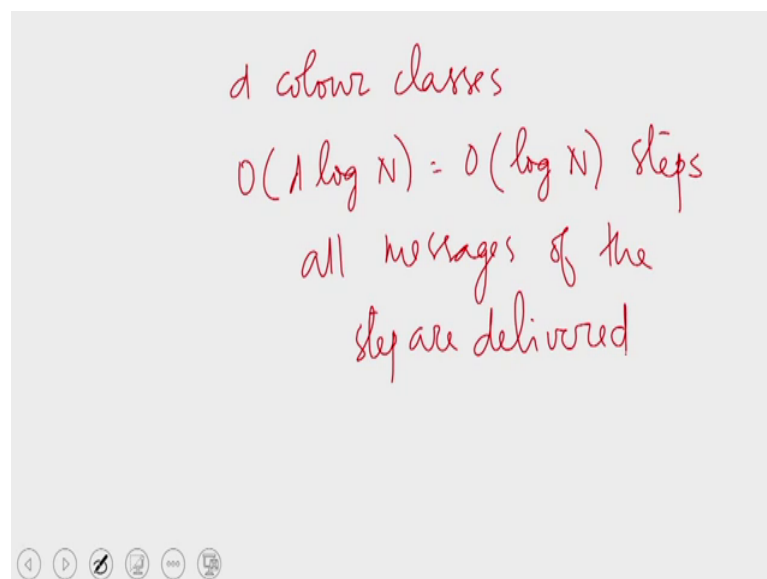 d colour classes
O(d log N) = O(log N) steps
all messages of the
step are delivered